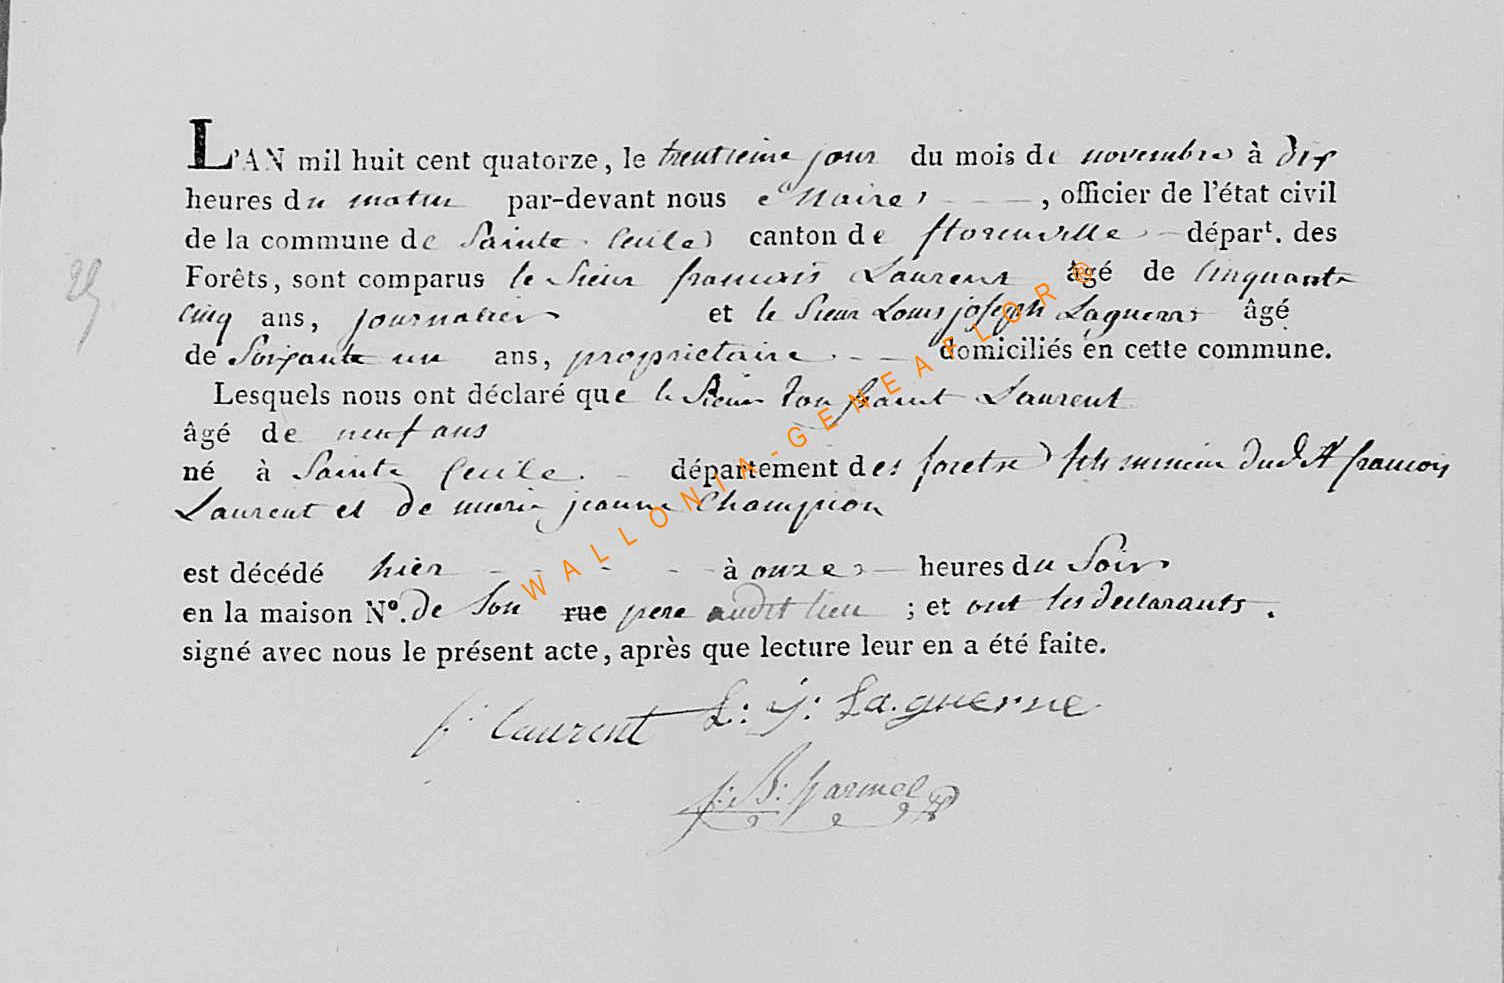 L'AN mil huit cent quatorze, le trentieme jour du mois de novembre à dix
heures du matin par-devant nous Maire, officier de l'état civil
de la commune de Sainte Cecile canton de florenville départ. des
Forêts, sont comparus le Sieur francois Laurent âgé de Cinquante
29
cinq ans, journalier et le Sieur Louis joseph Laguerre âgé
de Soixante un ans, proprietaire domiciliés en cette commune.
Lesquels nous ont déclaré que le Sieur toussaint Laurent
âgé de neuf ans
né à Sainte Cecile. département des forets fils mineur dudt francois
Laurent et de marie jeanne Champion
est décédé hier à onze heures du Soir
en la maison N°. de Son rue pere audit lieu ; et ont les declarants.
signé avec nous le présent acte, après que lecture leur en a été faite.
f. laurent L: j: La.guerre
j: B: harmel
WALLONIA-GENEAFLOR®